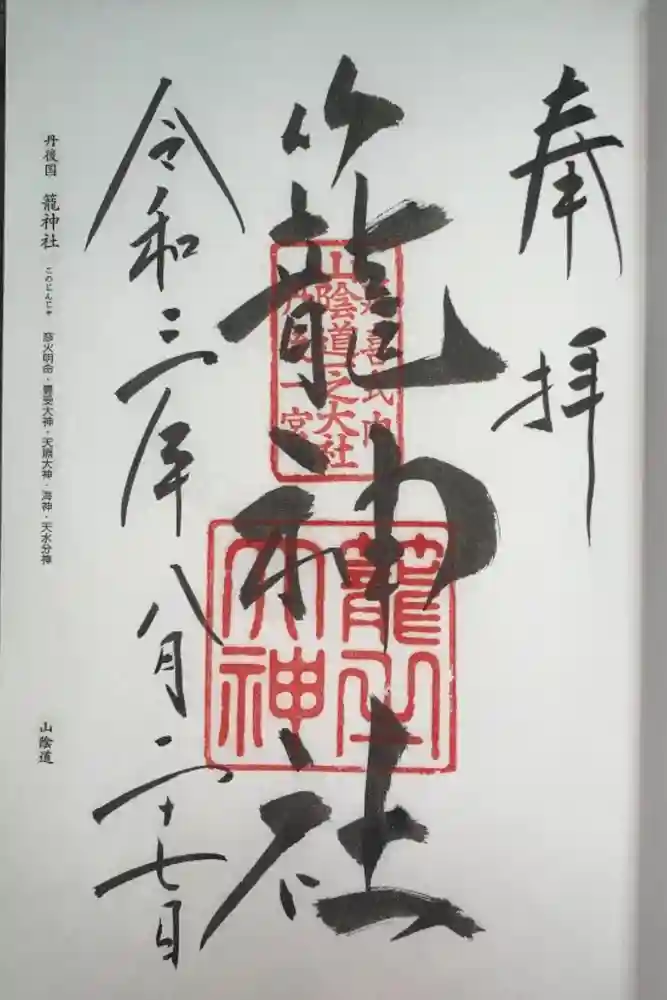 奉拝
籠神社
延喜式内
山陰道一之大社
丹後一宮
籠之大神
令和三年八月二十七日
丹後国 籠神社 このじんじゃ 彦火明命・豊受大神・天照大神・海神・天水分神
山陰道